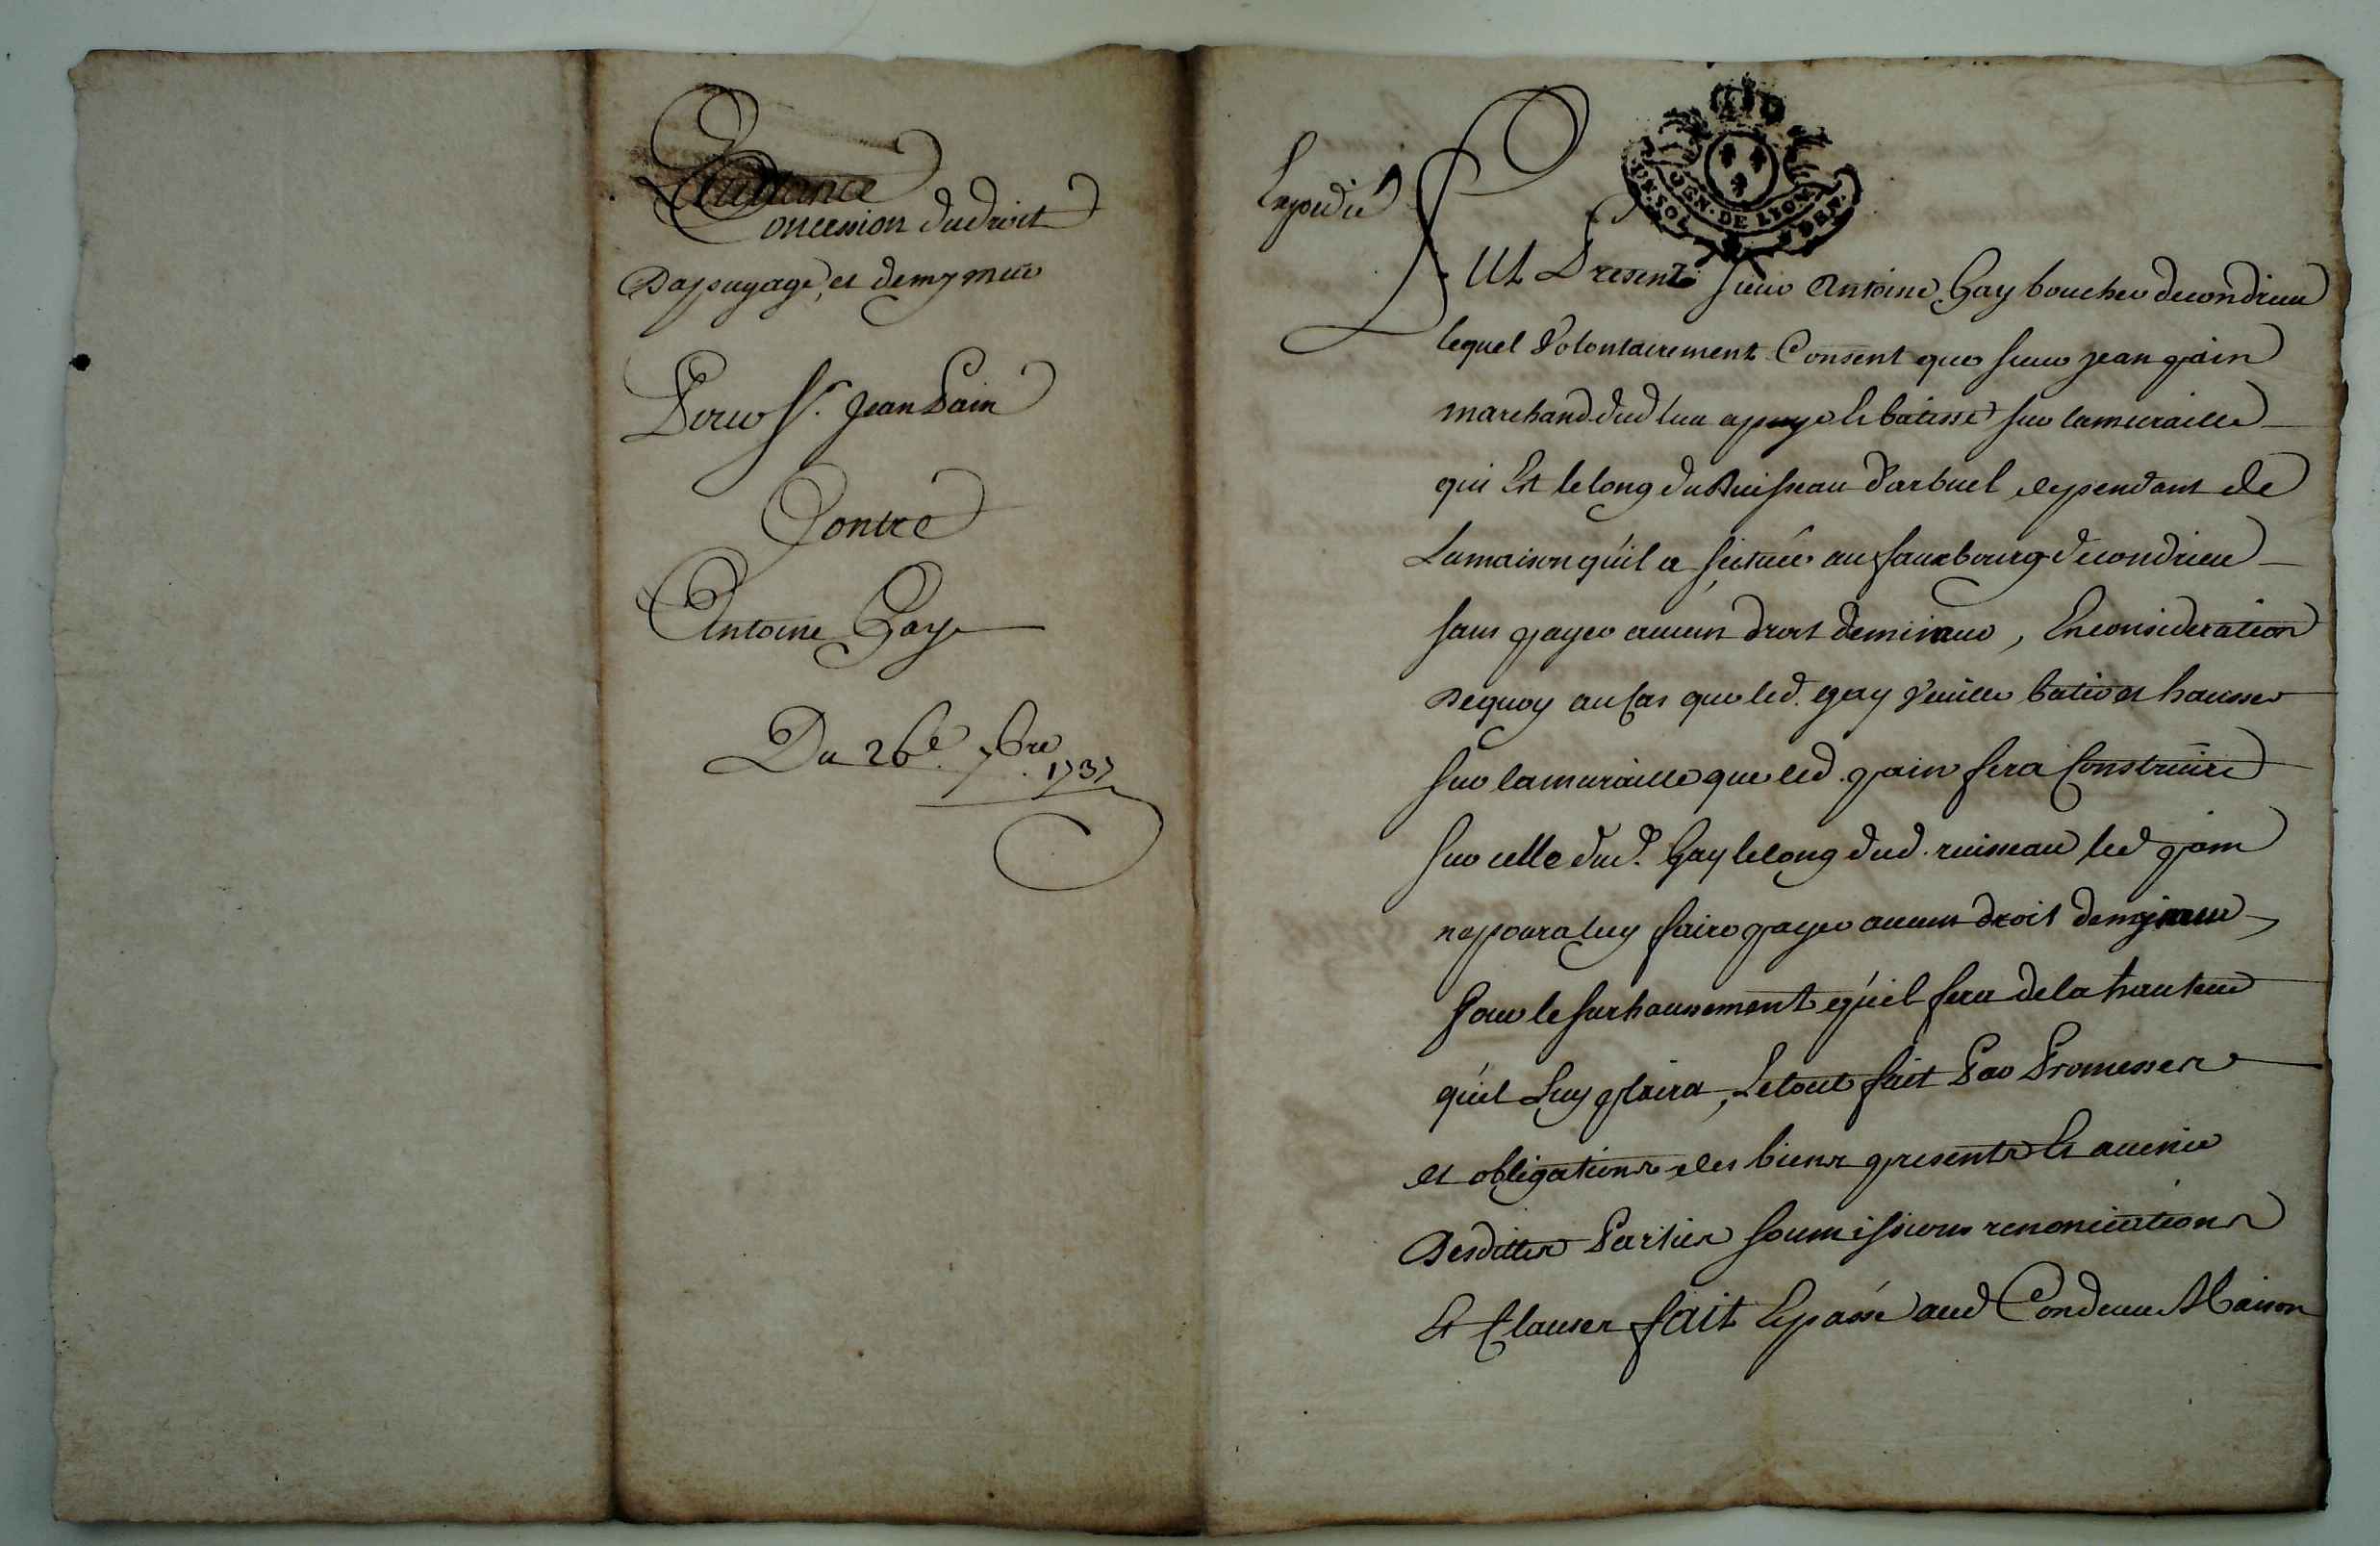 Quittance
Concession du droit
Dapuyage, et demy mur
Pour Sr. Jean Pain
Contre
Antoine Gay
Du 26e. 7bre
1737
Expedié
UN. SOL
GEN. DE LYON
Fut Present sieur Antoine Gay boucher de condrieu
lequel Volontairement Consent que sieur jean pain
marchand dud lieu apuye le batisse sur la muraille
qui Est le long du Ruisseau d'arbuel dependant de
La maison qu'il a scituée au fauxbourg de condrieu
sans payer aucun droit demimur, En consideration
De quoy au Cas que led. gay veuille batir et hausser
sur la muraille que led. pain fera Construire
sur celle dud. Gay le long dud. ruisseau led pain
ne poura luy faire payer aucun droit demymur
Pour le surhaussement qu'il fera de la hauteur
qu'il Luy plaira, Le tout fait Par Promesses
et obligations des biens presents Et avenir
Desdittes Parties soumissions renonciations
Et Clauses fait Et passé aud Condrieu Maison